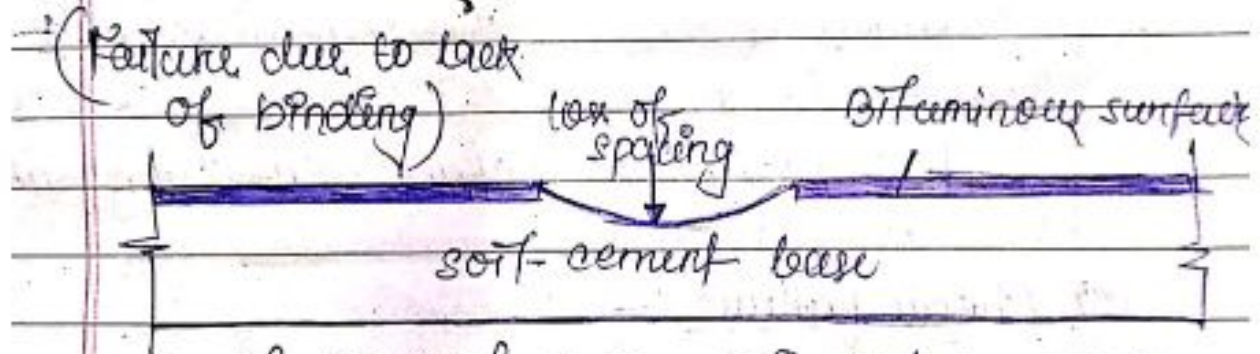 (Failure due to lack
of binding)
loss of
spacing
Bituminous surface
soil-cement base